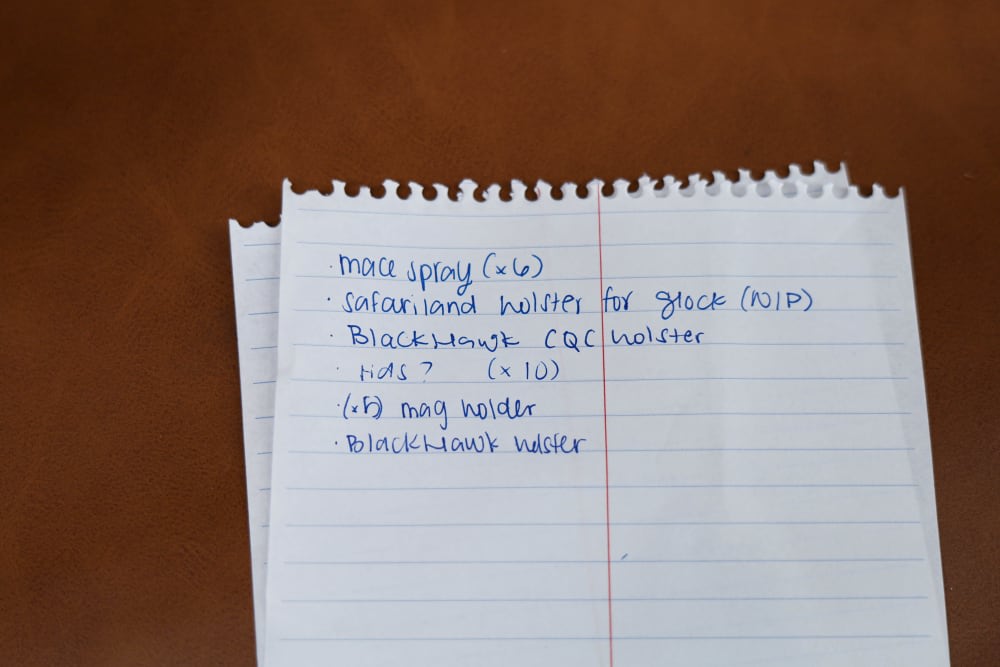 · mace spray (x6)
· safariland holster for glock (NIP)
· BlackHawk CQC holster
· HDS ? (x 10)
· (x5) mag holder
· BlackHawk holster